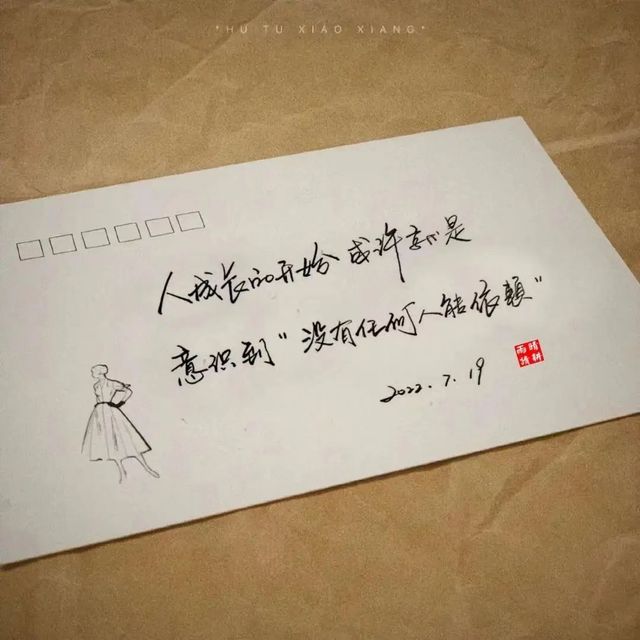 *HU TU XIAO XIANG*
人成长的开始 或许就是
意识到"没有任何人能依赖"
2022.7.19
雨晴
读耕